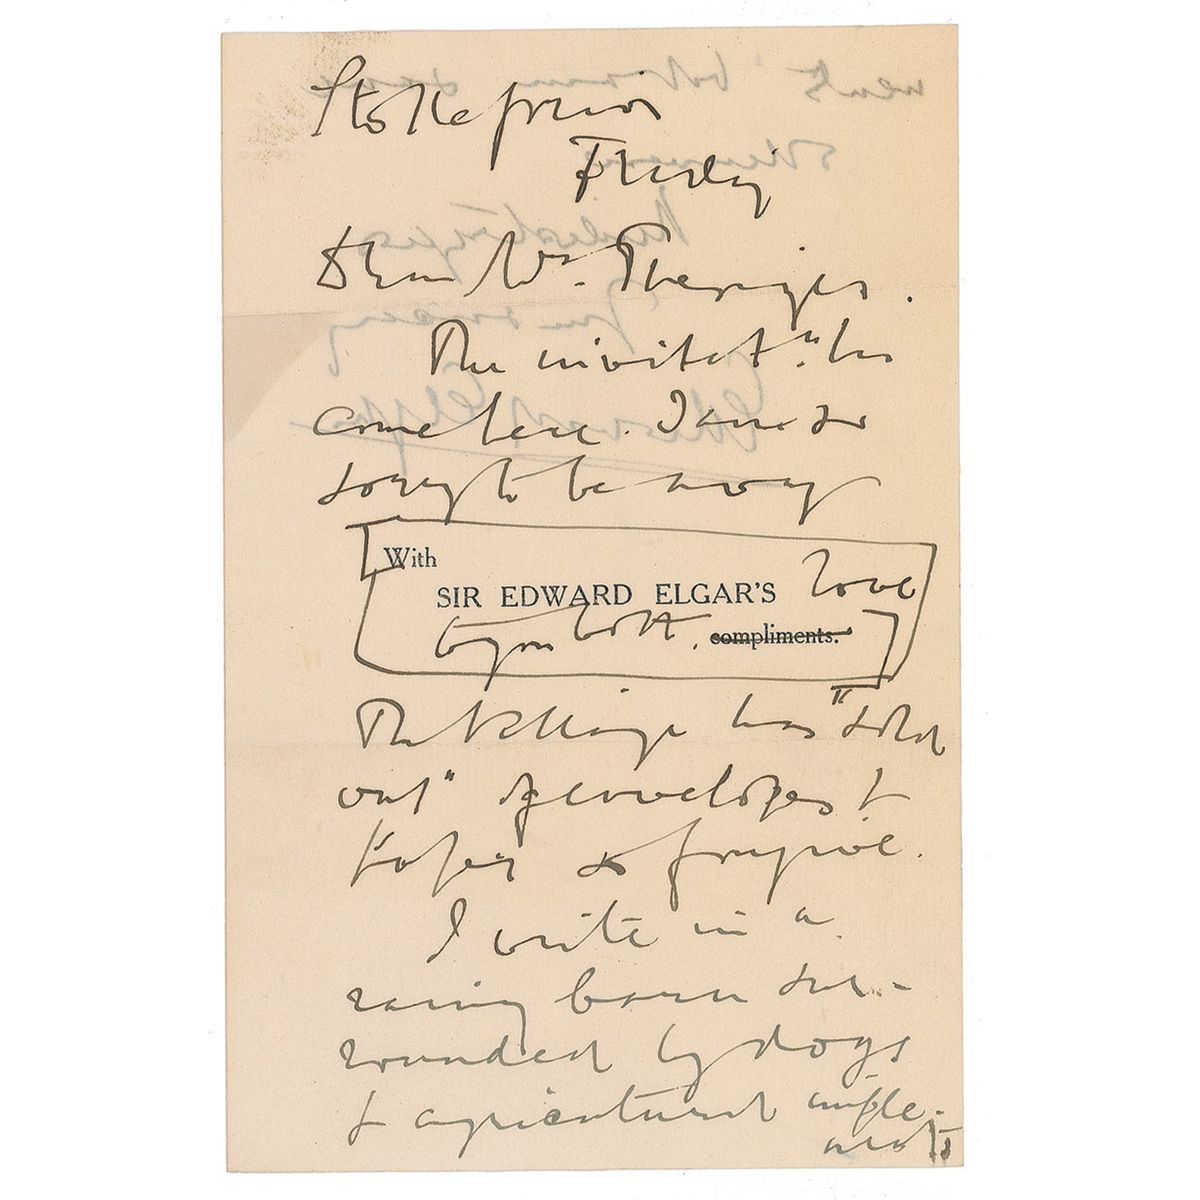 Stoke prior
Friday
Dear Mrs. Thesiger.
The invitatn. has
come here. I am so
sorry to be away
With
SIR EDWARD ELGAR'S love
to you both. compliments.
The village has "sold
out" of envelopes &
paper so forgive.
I write in a
rainy barn sur-
rounded by dogs
& agricultural imple-
ments